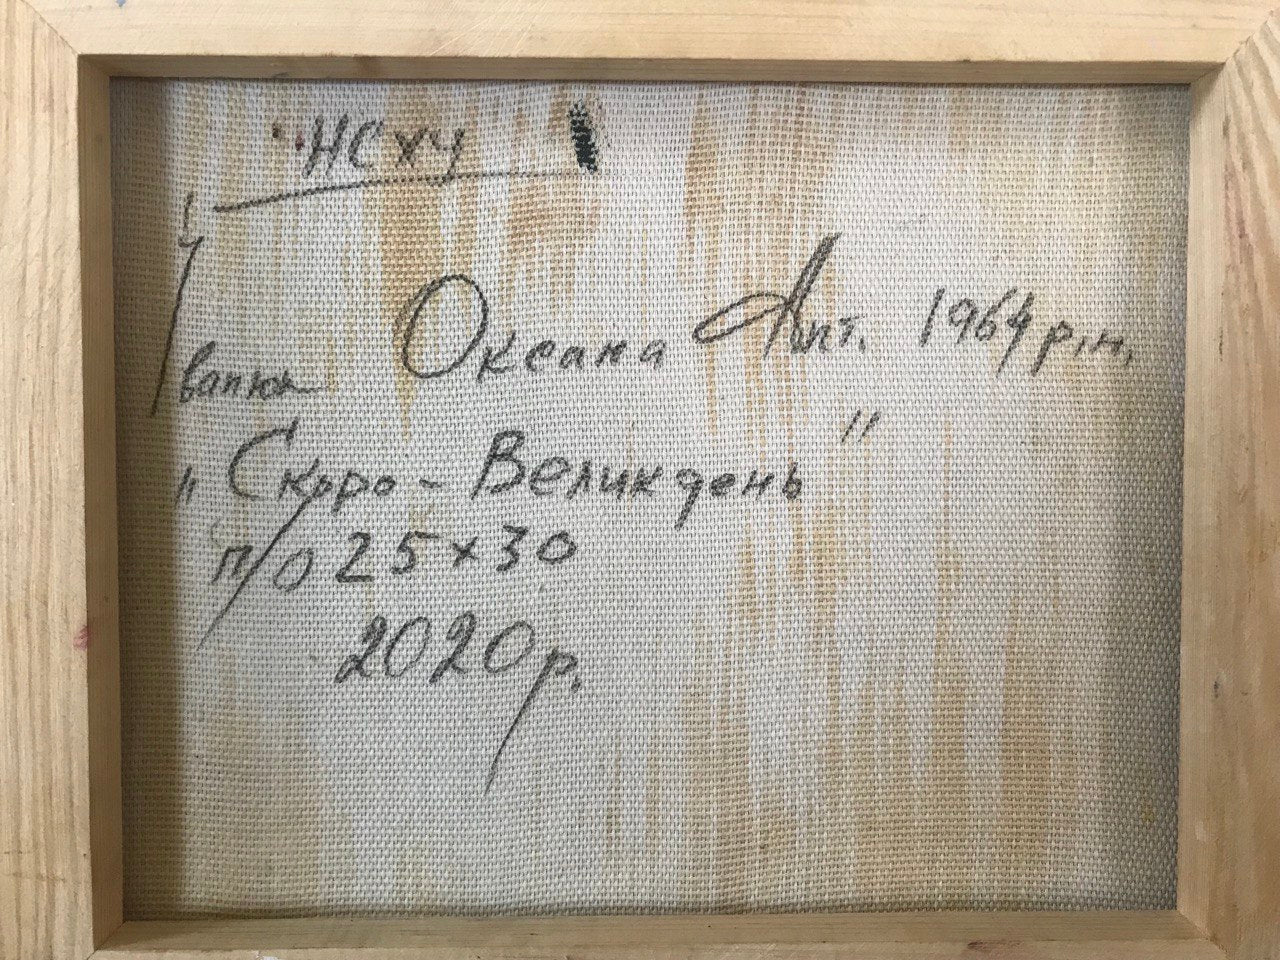 НСХУ
Іванюк Оксана Ант. 1964 р.н.
"Скоро - Великдень"
п/о 25х30
2020р.